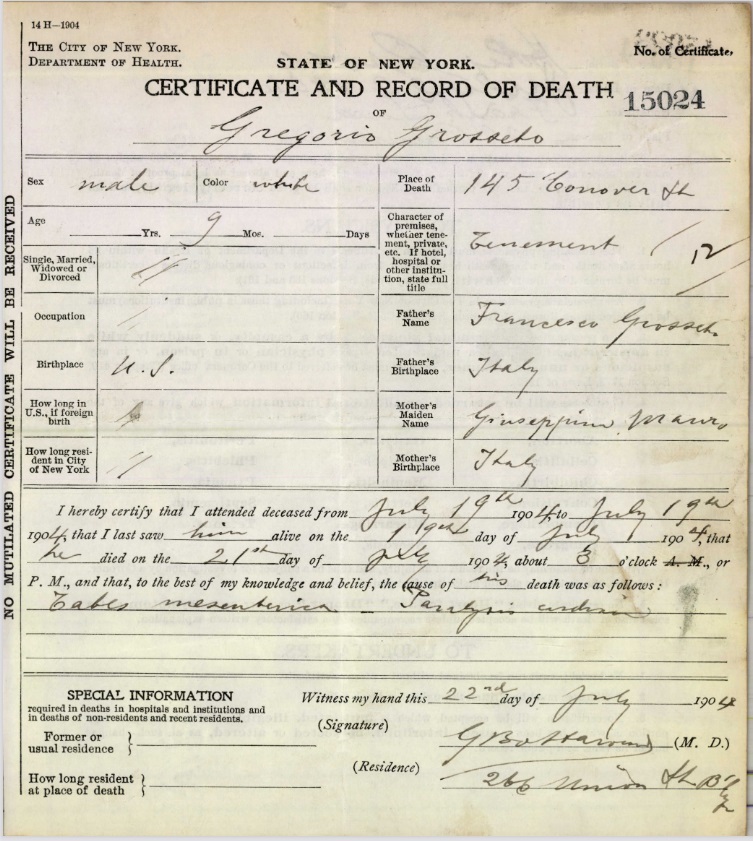 14 H–1904
THE CITY OF NEW YORK.
DEPARTMENT OF HEALTH.
STATE OF NEW YORK.
No. of Certificate,
CERTIFICATE AND RECORD OF DEATH
15024
OF
Gregorio Grosseto
NO MUTILATED CERTIFICATE WILL BE RECEIVED
Sex male Color white
Age Yrs. 9 Mos. Days
Single, Married,
Widowed or
Divorced
Occupation
Birthplace U.S.
How long in
U.S., if foreign
birth
How long resi-
dent in City
of New York
Place of
Death 145 Conover St
Character of
premises,
whether tene-
ment, private,
etc. If hotel,
hospital or
other institu-
tion, state full
title
Tenement / 12
Father's
Name Francesco Grosseto
Father's
Birthplace Italy
Mother's
Maiden
Name Giuseppina Mauro
Mother's
Birthplace Italy
I hereby certify that I attended deceased from July 19th 1904 to July 19th
1904, that I last saw him alive on the 19th day of July 1904, that
he died on the 21st day of July 1904, about 3 o'clock A. M., or
P. M., and that, to the best of my knowledge and belief, the cause of his death was as follows:
Tabes mesenterica – Paralysis cardiaca
SPECIAL INFORMATION
required in deaths in hospitals and institutions and
in deaths of non-residents and recent residents.
Former or
usual residence
How long resident
at place of death
Witness my hand this 22nd day of July 1904
(Signature) (M. D.)
(Residence) 266 Union St B'klyn